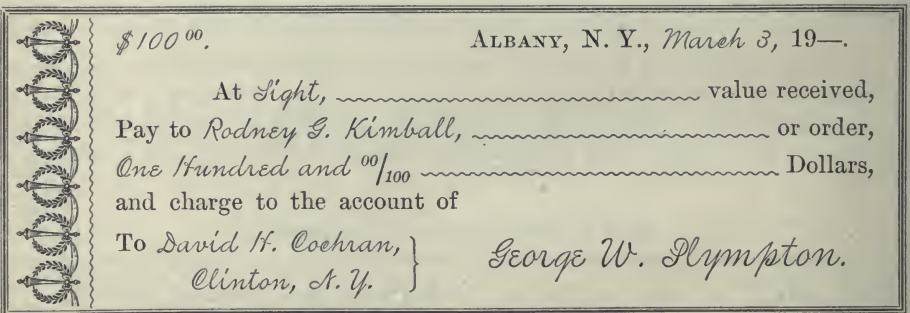 $100 00. ALBANY, N. Y., March 3, 19—.
At Sight, value received,
Pay to Rodney G. Kimball, or order,
One Hundred and 00/100 Dollars,
and charge to the account of
To David H. Cochran,
Clinton, N. Y. George W. Plympton.